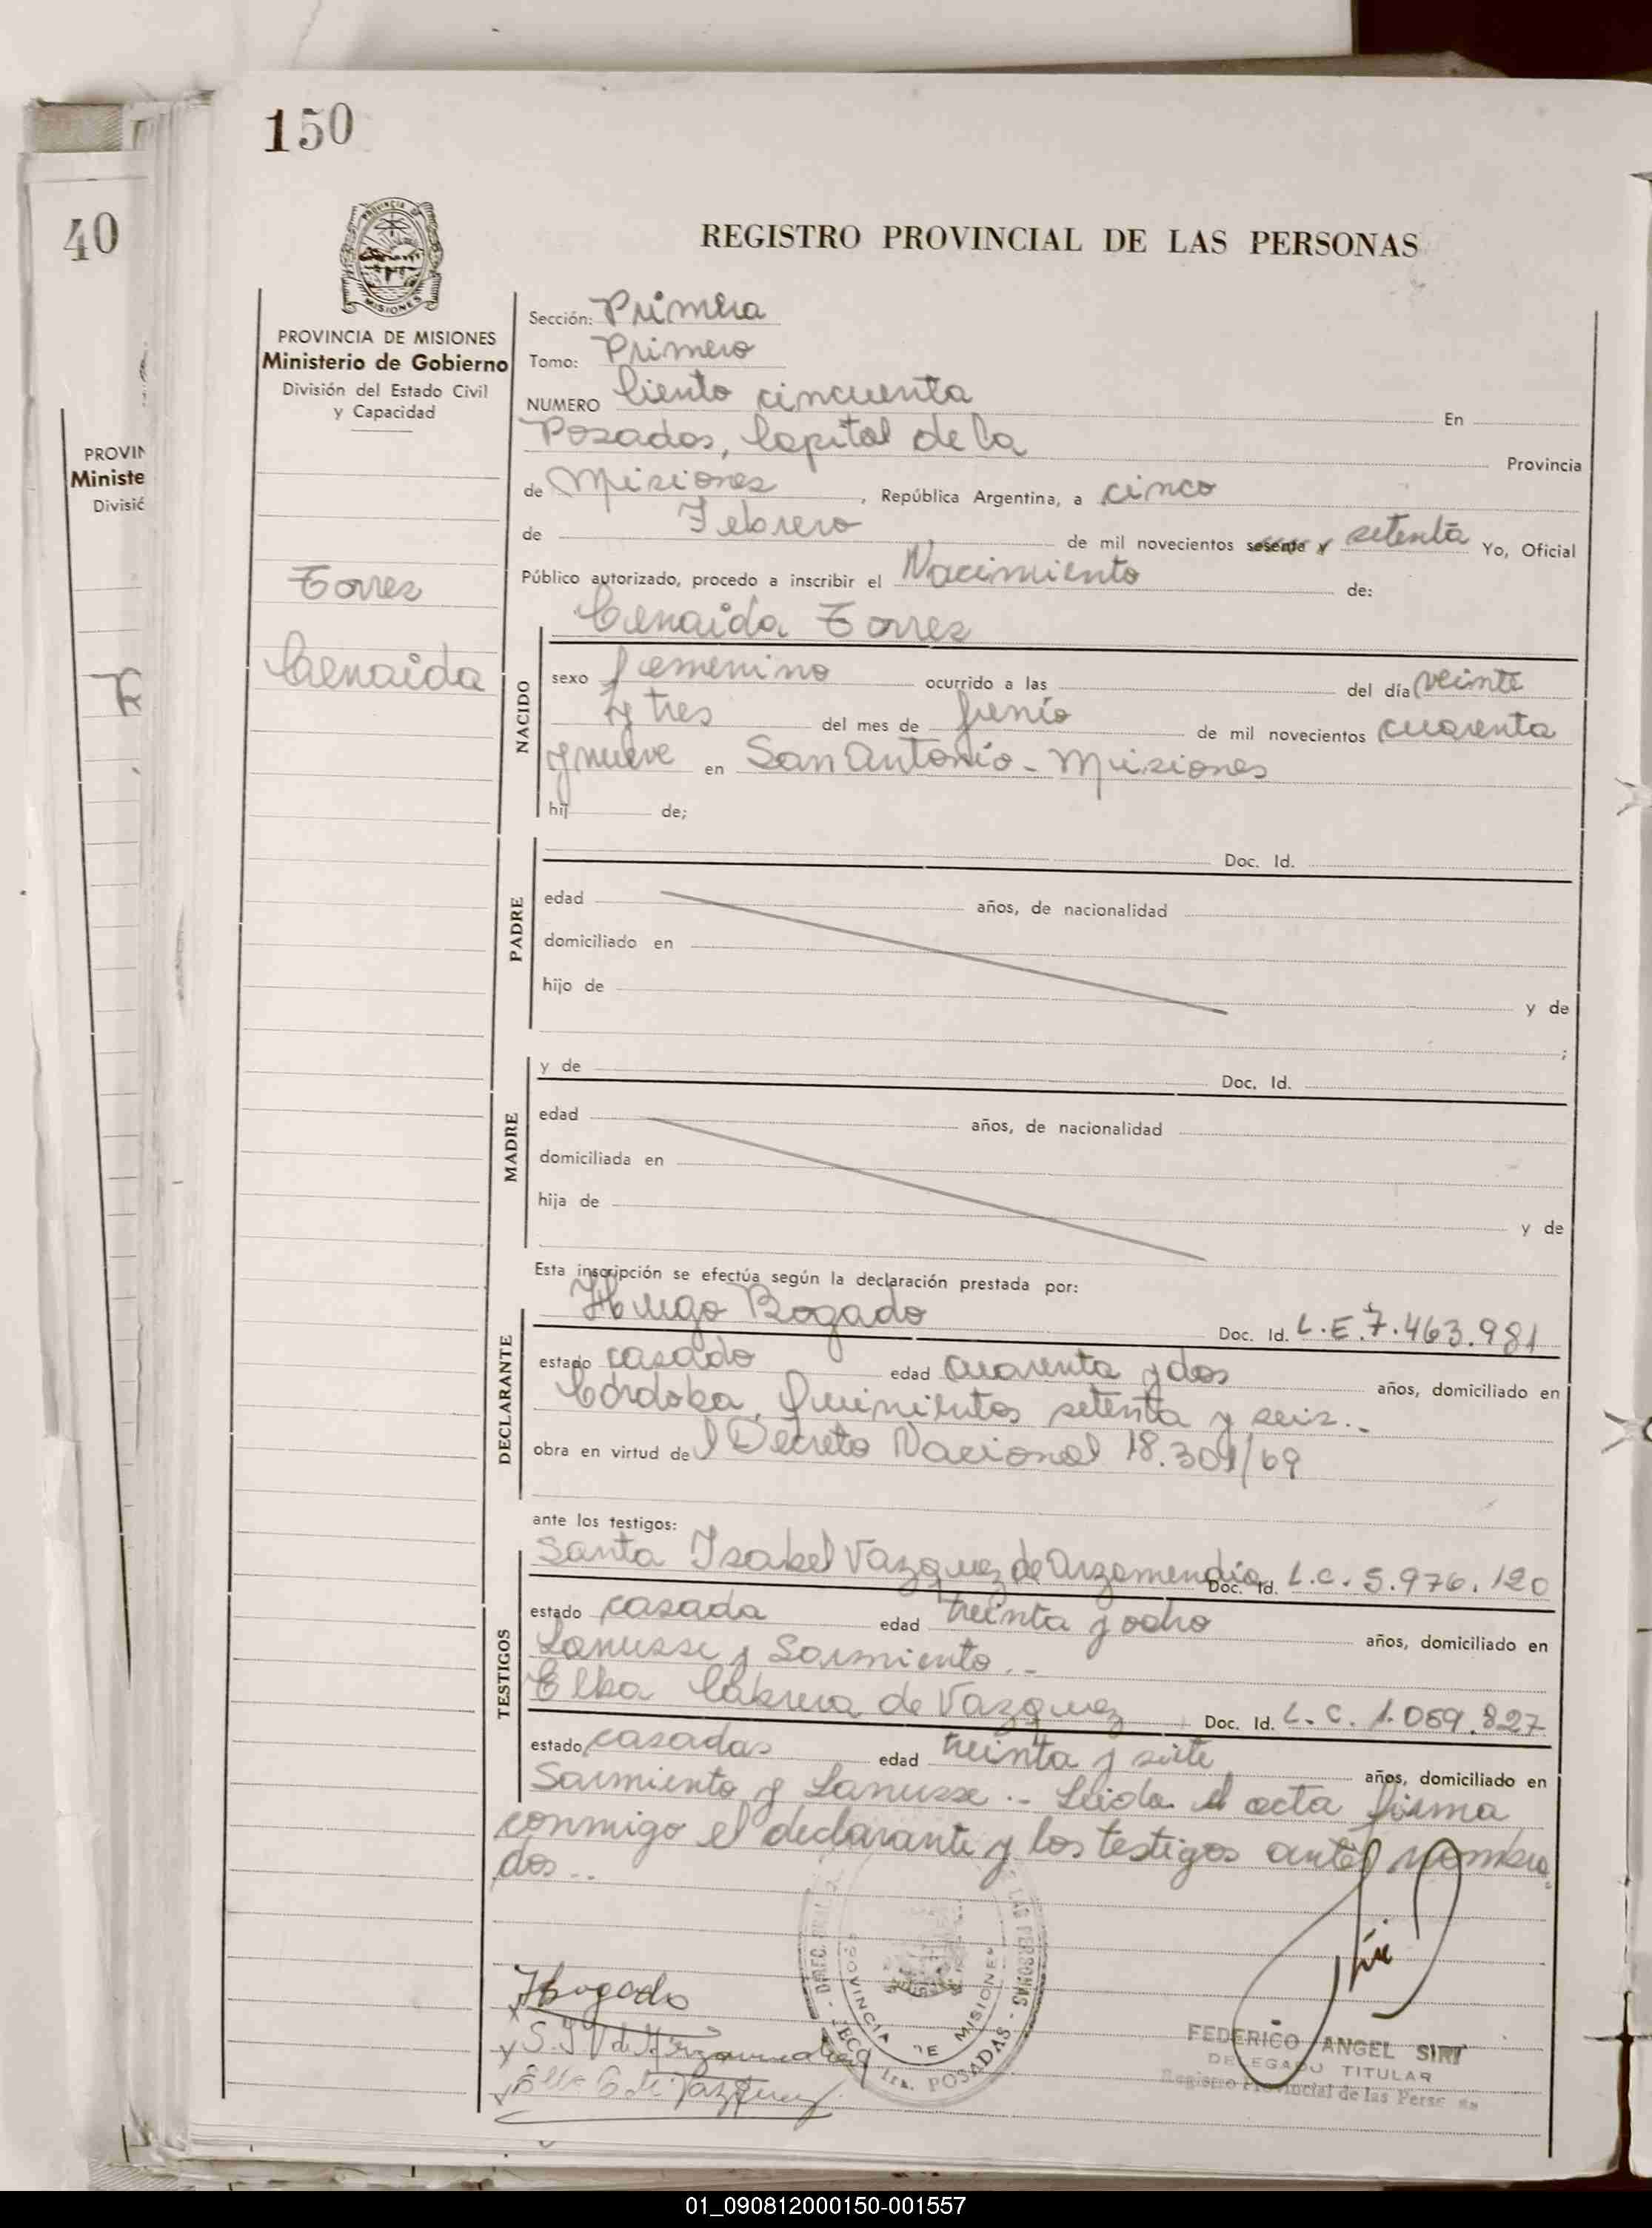 150
40
REGISTRO PROVINCIAL DE LAS PERSONAS
PROVINCIA DE MISIONES
Ministerio de Gobierno
División del Estado Civil
y Capacidad
PROVIN
Ministe
Divisić
Torres
Cenaida
Sección: Primera
Tomo: Primero
NUMERO Ciento cincuenta En
Posadas, Capital de la Provincia
de Misiones, República Argentina, a cinco
de Febrero de mil novecientos sesenta y setenta Yo, Oficial
Público autorizado, procedo a inscribir el Nacimiento de:
Cenaida Torres
NACIDO
sexo femenino ocurrido a las del día veinte
y tres del mes de junio de mil novecientos cuarenta
y nueve en San Antonio - Misiones
hij de;
PADRE
Doc. Id.
edad años, de nacionalidad
domiciliado en
hijo de y de
;
MADRE
y de Doc. Id.
edad años, de nacionalidad
domiciliada en
hija de y de
Esta inscripción se efectúa según la declaración prestada por:
DECLARANTE
Hugo Bogado Doc. Id. L.E.7.463.981
estado casado edad cuarenta y dos años, domiciliado en
Córdoba, Quinientos setenta y seis.-
obra en virtud del Decreto Nacional 18.301/69
ante los testigos:
TESTIGOS
Santa Isabel Vazquez de Arzamendia Doc. Id. L.C. 5.976.120
estado casada edad treinta y ocho años, domiciliado en
Lanusse y Sarmiento.-
Elba Cabrera de Vazquez Doc. Id. L.C. 1.059.827
estado casadas edad treinta y siete años, domiciliado en
Sarmiento y Lanusse.- Leida el acta firma
conmigo el declarante y los testigos antes nombra
dos.-
HBogado
S.I.V de Arzamendia
Elba C de Vazquez
LAS PERSONAS - POSADAS
PROVINCIA DE MISIONES
FEDERICO ANGEL SIRI
DELEGADO TITULAR
Registro Provincial de las Personas
01_090812000150-001557